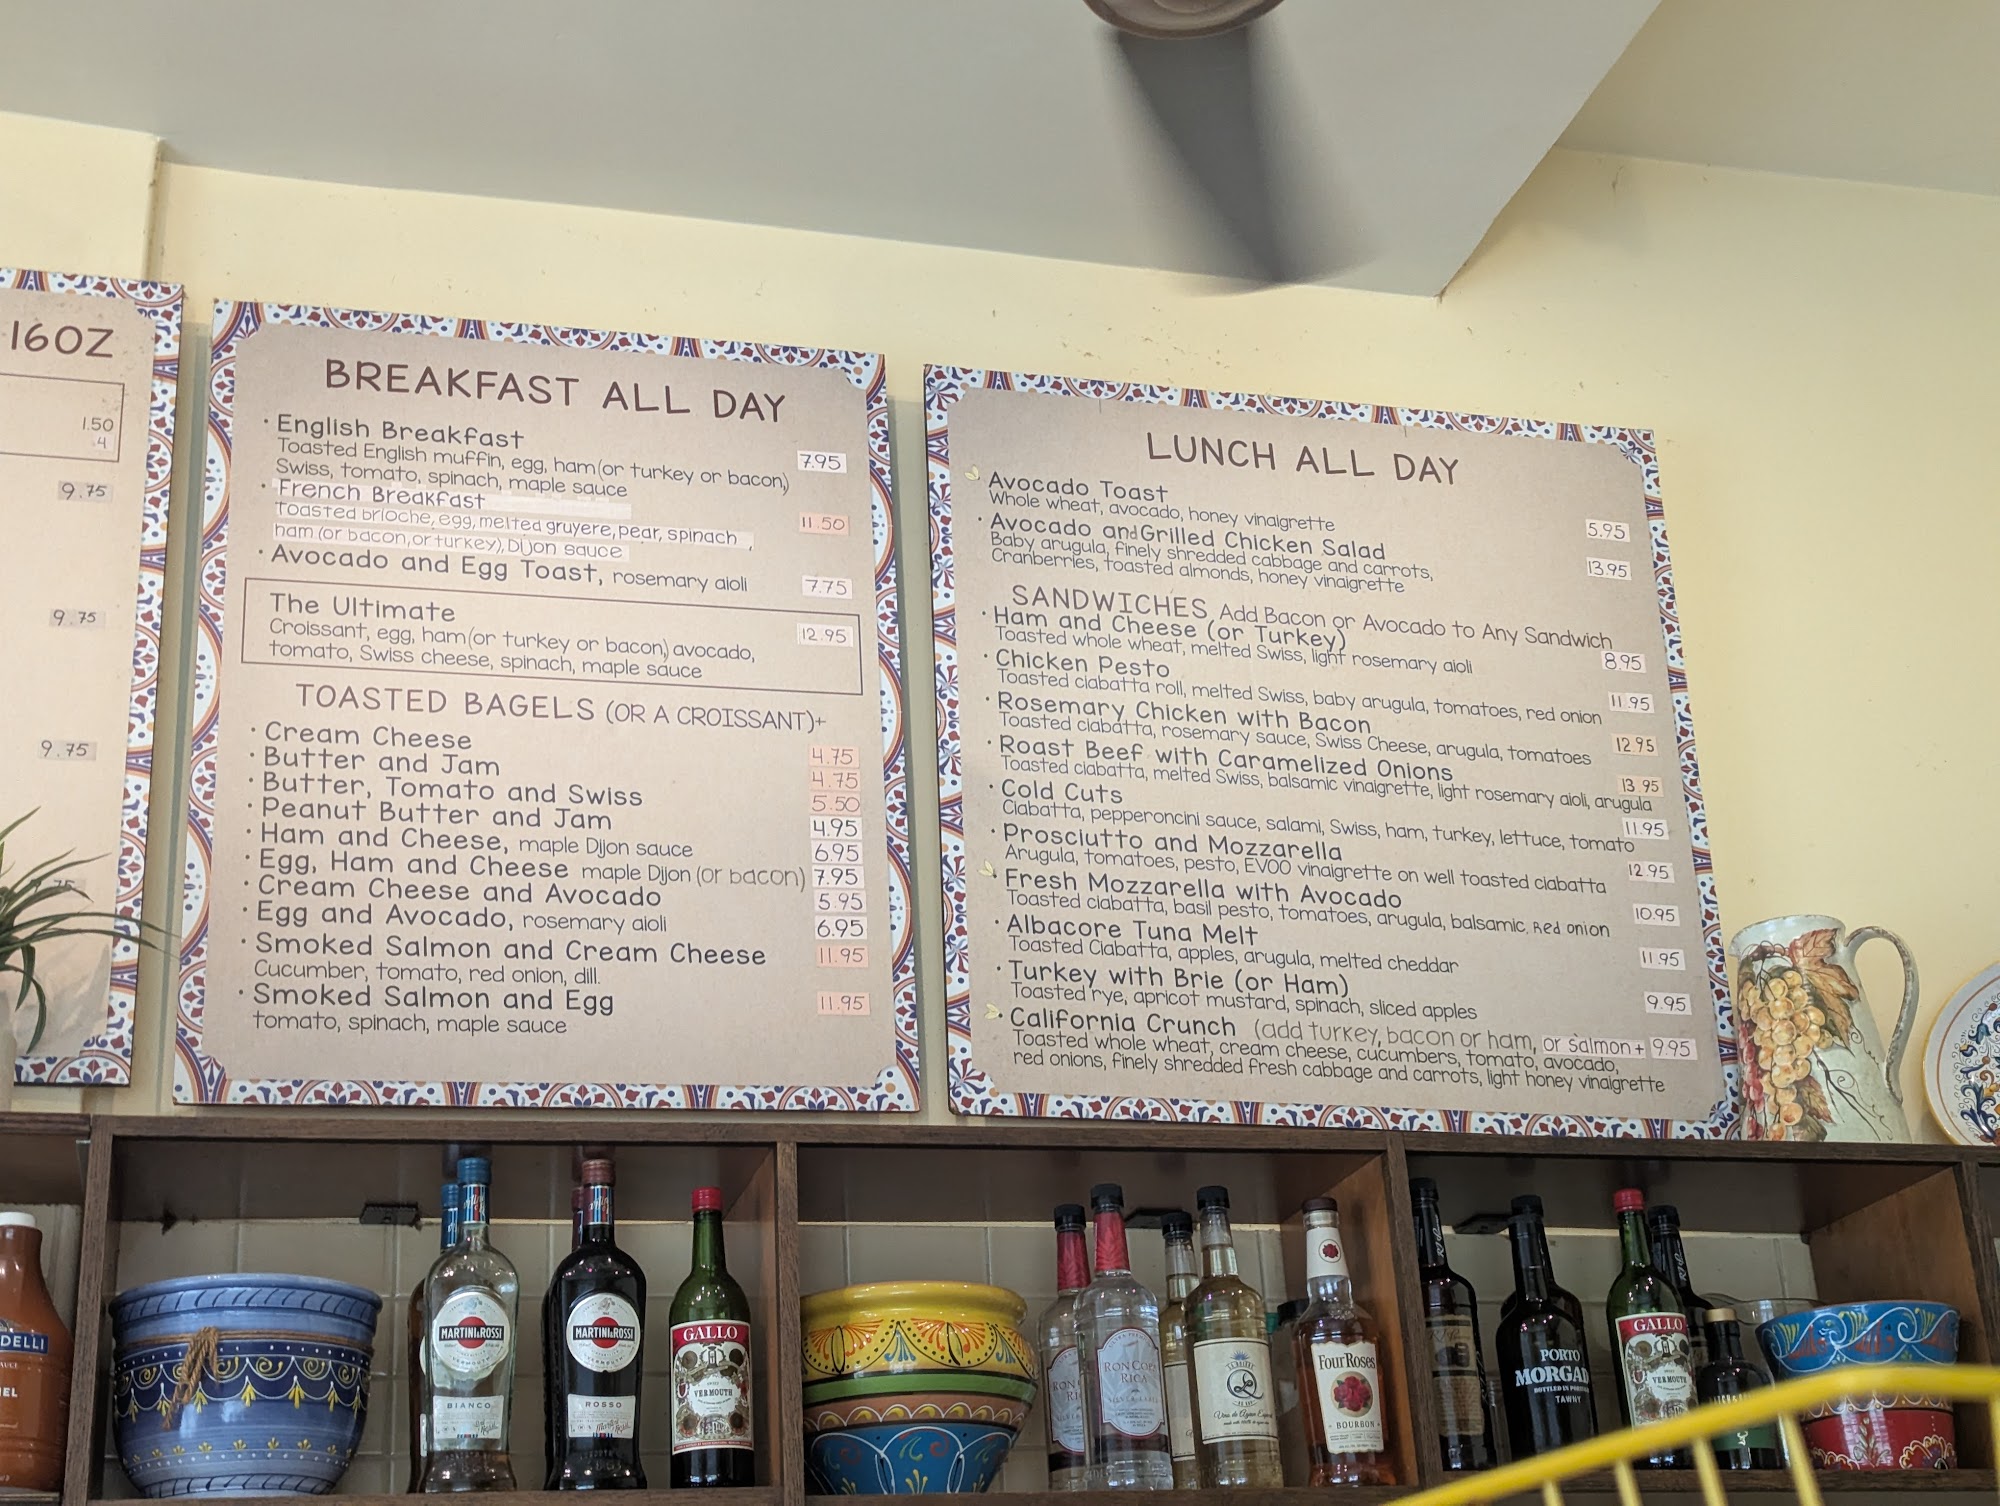 16OZ
1.50
4
9.75
9.75
9.75
BREAKFAST ALL DAY
· English Breakfast
Toasted English muffin, egg, ham (or turkey or bacon,) 7.95
Swiss, tomato, spinach, maple sauce
· French Breakfast
Toasted brioche, egg, melted gruyere, pear, spinach, 11.50
ham (or bacon, or turkey), Dijon sauce
· Avocado and Egg Toast, rosemary aioli 7.75
The Ultimate
Croissant, egg, ham (or turkey or bacon,) avocado, 12.95
tomato, Swiss cheese, spinach, maple sauce
TOASTED BAGELS (OR A CROISSANT)+
· Cream Cheese 4.75
· Butter and Jam 4.75
· Butter, Tomato and Swiss 5.50
· Peanut Butter and Jam 4.95
· Ham and Cheese, maple Dijon sauce 6.95
· Egg, Ham and Cheese maple Dijon (or bacon) 7.95
· Cream Cheese and Avocado 5.95
· Egg and Avocado, rosemary aioli 6.95
· Smoked Salmon and Cream Cheese 11.95
Cucumber, tomato, red onion, dill.
· Smoked Salmon and Egg 11.95
tomato, spinach, maple sauce
LUNCH ALL DAY
Avocado Toast
Whole wheat, avocado, honey vinaigrette 5.95
· Avocado and Grilled Chicken Salad
Baby arugula, finely shredded cabbage and carrots, 13.95
Cranberries, toasted almonds, honey vinaigrette
SANDWICHES Add Bacon or Avocado to Any Sandwich
· Ham and Cheese (or Turkey)
Toasted whole wheat, melted Swiss, light rosemary aioli 8.95
· Chicken Pesto
Toasted ciabatta roll, melted Swiss, baby arugula, tomatoes, red onion 11.95
· Rosemary Chicken with Bacon
Toasted ciabatta, rosemary sauce, Swiss Cheese, arugula, tomatoes 12.95
· Roast Beef with Caramelized Onions
Toasted ciabatta, melted Swiss, balsamic vinaigrette, light rosemary aioli, arugula 13.95
· Cold Cuts
Ciabatta, pepperoncini sauce, salami, Swiss, ham, turkey, lettuce, tomato 11.95
· Prosciutto and Mozzarella
Arugula, tomatoes, pesto, EVOO vinaigrette on well toasted ciabatta 12.95
· Fresh Mozzarella with Avocado
Toasted ciabatta, basil pesto, tomatoes, arugula, balsamic, Red onion 10.95
· Albacore Tuna Melt
Toasted Ciabatta, apples, arugula, melted cheddar 11.95
· Turkey with Brie (or Ham)
Toasted rye, apricot mustard, spinach, sliced apples 9.95
· California Crunch (add turkey, bacon or ham, or salmon + 9.95
Toasted whole wheat, cream cheese, cucumbers, tomato, avocado,
red onions, finely shredded fresh cabbage and carrots, light honey vinaigrette
DELLI
MARTINI & ROSSI
VERMOUTH
BIANCO
MARTINI & ROSSI
VERMOUTH
ROSSO
GALLO
VERMOUTH
RON
RICA
Four Roses
BOURBON
PORTO
BOTTLED IN PORTUGAL
TAWNY
GALLO
VERMOUTH